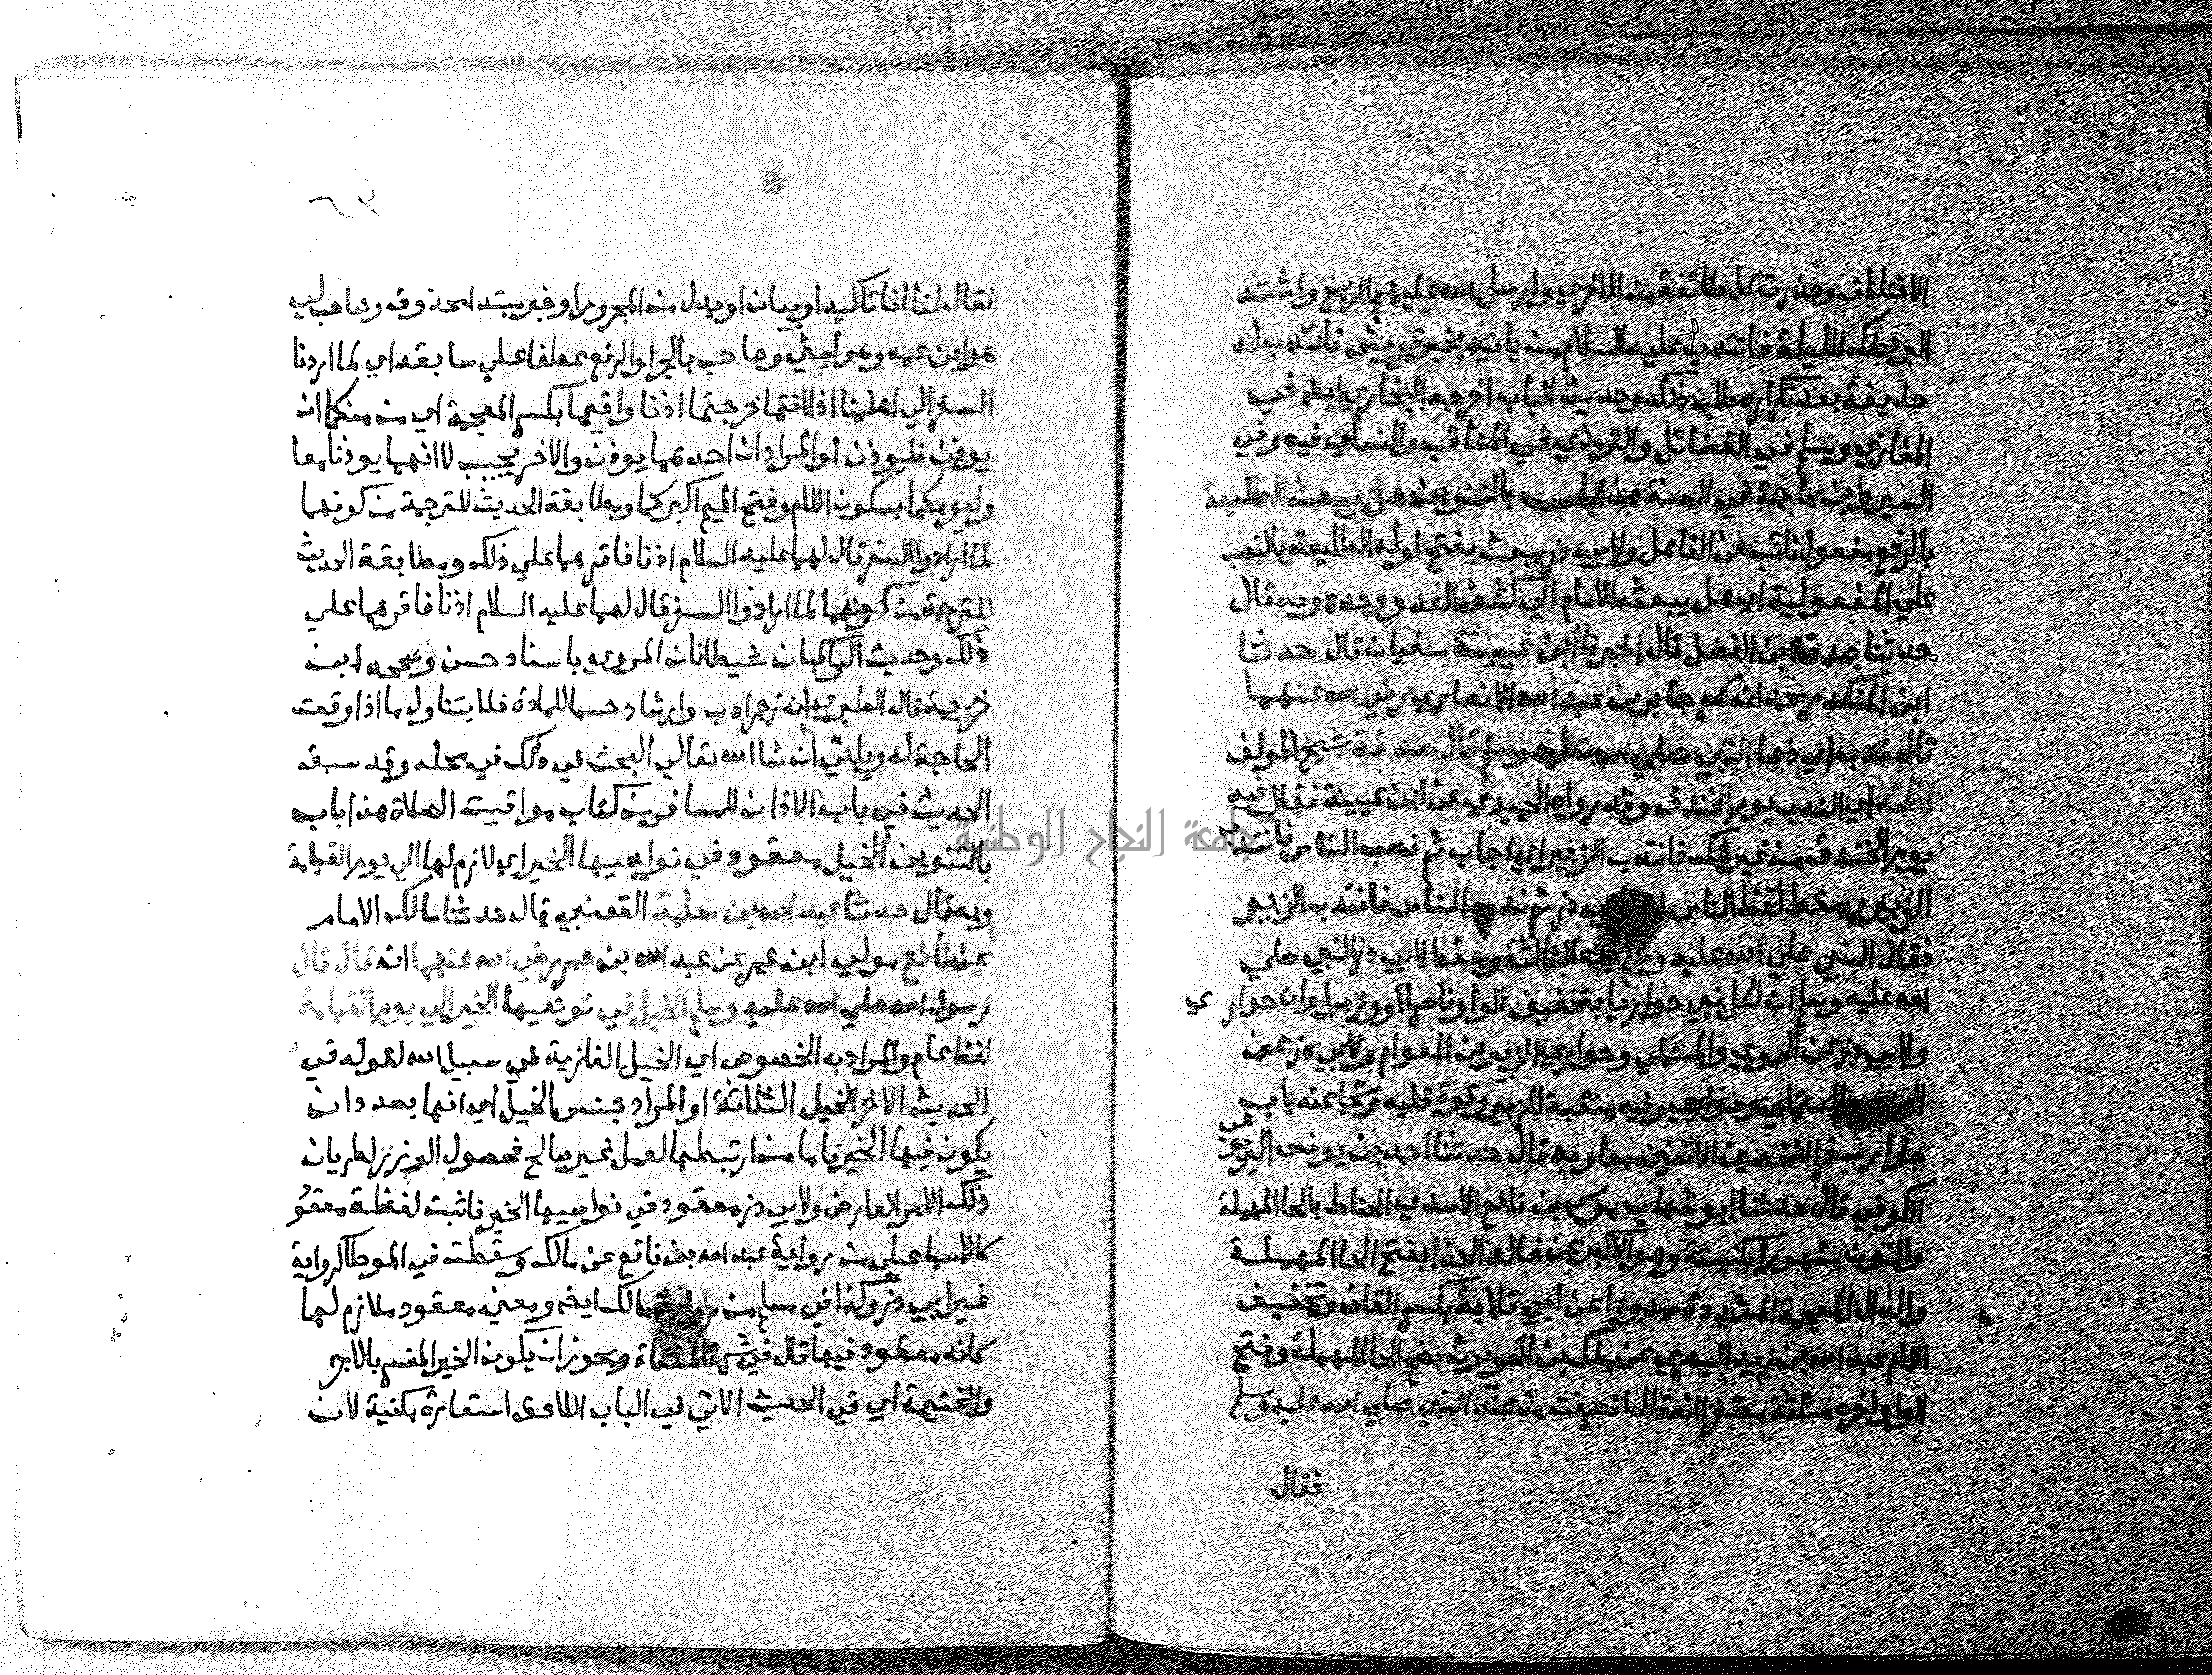 الاختلاف وحذرت كل طائفة من الاخري وارسل الله عليهم الريح واشتد
البرد تلك الليلة فانتدب عليه السلام من ياتيه بخبر قريش فانتدب له
حذيفة بعد تكراره طلب ذلك وحديث الباب اخرجه البخاري ايضا في
المغازي ومسلم في الفضائل والترمذي في المناقب والنساي فيه وفي
السير وابن ماجة في السنة هذا باب بالتنوين هل يبعث الطليعة
بالرفع مفعول نائب عن الفاعل ولابي ذر يبعث بفتح اوله الطليعة بالنصب
علي المفعولية اي هل يبعثه الامام الي كشف العدو وحده وبه قال
حدثنا صدقة بن الفضل قال اخبرنا ابن عيينة سفيان قال حدثنا
ابن المنكدر محمد انه سمع جابر بن عبد الله الانصاري رضي الله عنهما
قال ندب اي دعا النبي صلي الله عليه وسلم قال صدقة شيخ المولف
اظنه اي الندب يوم الخندق وقد رواه الحميدي عن ابن عيينة فقال فيه
يوم الخندق من غير شك فانتدب الزبير اي اجاب ثم ندب الناس فانتدب
الزبير وسقط لفظ الناس ذر ثم ندب الناس فانتدب الزبير
فقال النبي صلي الله عليه وسلم الثالثة وسقط لابي ذر النبي صلي
الله عليه وسلم ان لكل نبي حواريا بتخفيف الواو ناصرا او وزيرا وان حواري
ولابي ذر عن الحموي والمستملي وحواري الزبير بن العوام ولابي ذر عن
المستملي وحواري وفيه منقبة للزبير وقوة قلبه وشجاعته باب
جواز سفر الشخصين الاثنين معا وبه قال حدثنا احمد بن يونس اليربوعي
الكوفي قال حدثنا ابو شهاب موسي بن نافع الاسدي الحناط بالحا المهملة
والنون مشهور بكنيته وهو الاكبر عن خالد الحذا بفتح الحا المهملة
والذال المعجمة المشددة ممدودا عن ابي قلابة بكسر القاف وتخفيف
اللام عبد الله بن زيد البصري عن ملك بن الحويرث بضم الحا المهملة وفتح
الواو اخره مثلثة مصغرا انه قال انصرفت من عند النبي صلي الله عليه وسلم
فقال
٢٣
فقال لنا انا تاكيد او بيان او بدل من المجرور او خبر مبتدا محذوف وصاحب لي
هو ابن عمه وهو ليثي وصاحب بالجر او الرفع عطفا علي سابقه اي لما اردنا
السفر الي اهلينا اذا انتما خرجتما اذنا واقيما بكسر المعجمة اي من منكما ان
يوذن فليوذن او المراد ان احدهما يوذن والاخر يجيب لا انهما يوذنا معا
وليومكما بسكون اللام وفتح الميم اكبركما ومطابقة الحديث للترجمة من كونهما
لما ارادوا السفر قال لهما عليه السلام اذنا فاقرهما علي ذلك ومطابقة الحديث
للترجمة من كونهما لما ارادوا السفر قال لهما عليه السلام اذنا فاقرهما علي
ذلك وحديث الراكبان شيطانان المروي باسناد حسن وصححه ابن
خزيمة قال الطبري انه زجر ادب وارشاد حسما للمادة فلا يتناول ما اذا وقعت
الحاجة له وياتي ان شا الله تعالي البحث في ذلك في محله وقد سبق
الحديث في باب الاذان للمسافر من كتاب مواقيت الصلاة هذا باب
بالتنوين الخيل معقود في نواصيها الخير اي لازم لها الي يوم القيامة
وبه قال حدثنا عبد الله بن مسلمة القعنبي قال حدثنا مالك الامام
عن نافع مولي ابن عمر عن عبد الله بن عمر رضي الله عنهما انه قال قال
رسول الله صلي الله عليه وسلم الخيل في نواصيها الخير الي يوم القيامة
لفظ عام والمراد به الخصوص اي الخيل الغازية في سبيل الله لقوله في
الحديث الاخر الخيل الثلاثة او المراد جنس الخيل اي انها بصدد ان
يكون فيها الخير فاما من ارتبطها لعمل غير صالح فحصول الوزر لطريان
ذلك الامر العارض ولابي ذر معقود في نواصيها الخير فاثبت لفظة معقود
كالاسماعيلي من رواية عبد الله بن نافع عن مالك وسقطت في الموطا كرواية
غير ابي ذر وكذا في مسلم من رواية مالك ايضا ومعني معقود ملازم لها
كانه معقود فيها قال في شرح المشكاة ويجوز ان يكون الخير المفسر بالاجر
والغنيمة اي في الحديث الاتي في الباب اللاحق استعارة مكنية لان
جامعة النجاح الوطنية